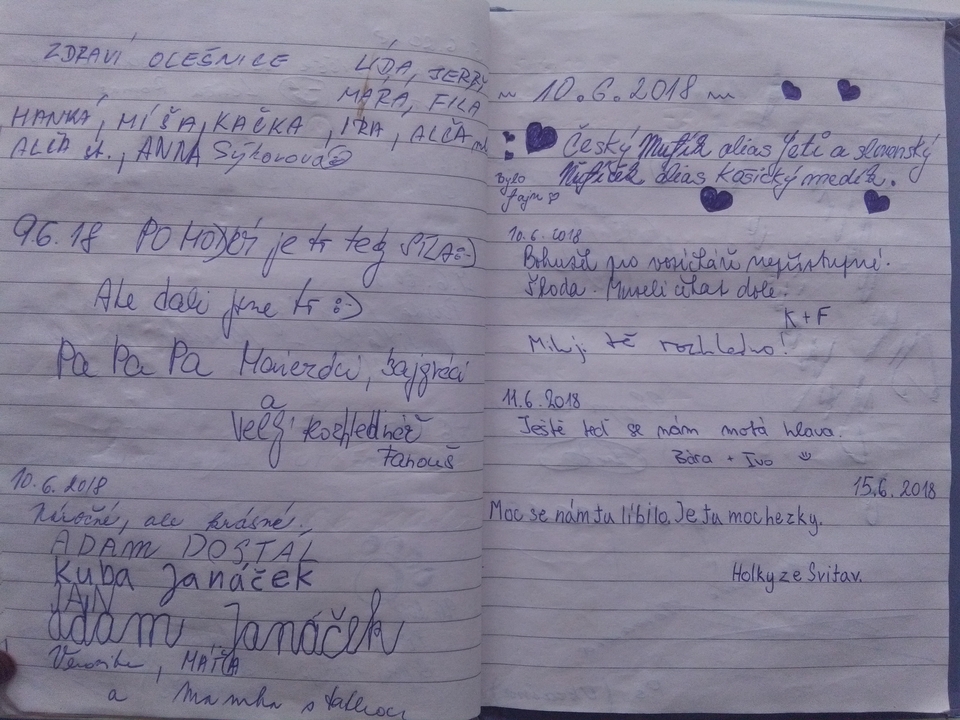 ZDRAVÍ OLEŠNICE
LÍDA, JERRY
MÁRA, FILA
HANKA, MÍŠA, KAČKA, IRA, ALČA ml.
ALČA st., ANNA Sýkorová
9.6.18 je tr teď SÍLA :-)
Ale dali jsme to :-)
Pa Pa Pa
a
velký rozhlednář
Fanouš
10.6.2018
Náročné, ale krásné.
ADAM DOSTÁL
Kuba Janáček
JAN
Adam Janáček
Veronika, MÁŤA
a Mamka s
~ 10.6.2018 ~
Český Mufík alias Yeti a slovenský
alias Kosický medík.
Bylo
fajn
10.6.2018
Bohužel pro vozíčkáře nepřístupné.
Škoda. Museli čekat dole.
K+F
Miluji tě rozhledno!
11.6.2018
Ještě teď se nám motá hlava.
Bára + Ivo
15.6.2018
Moc se nám tu líbilo. Je tu moc hezky.
Holky ze Svitav.